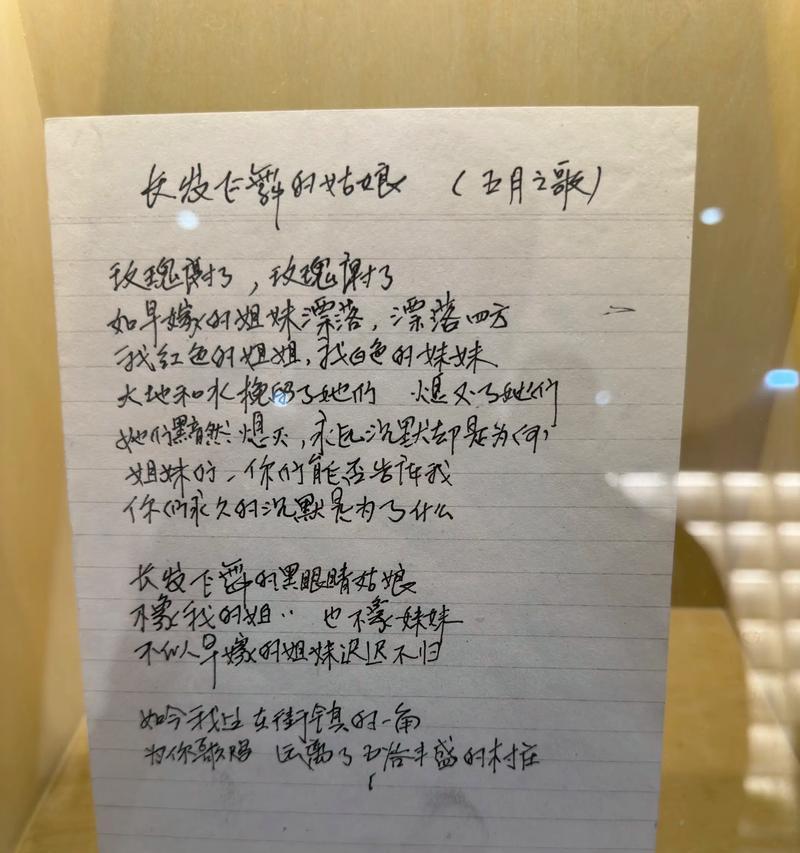 长发飞舞的姑娘 (五月之歌)
玫瑰谢了，玫瑰谢了
如早嫁的姐妹漂落，漂落四方
我红色的姐姐，我白色的妹妹
大地和水挽留了她们 熄灭了她们
她们黯然熄灭，永远沉默却是为何
姐妹们，你们能否告诉我
你们永久的沉默是为了什么
长发飞舞的黑眼睛姑娘
不象我的姐姐 也不象妹妹
不似早嫁的姐妹迟迟不归
如今我坐在街镇的一角
为你歌唱 远离了五谷丰盛的村庄